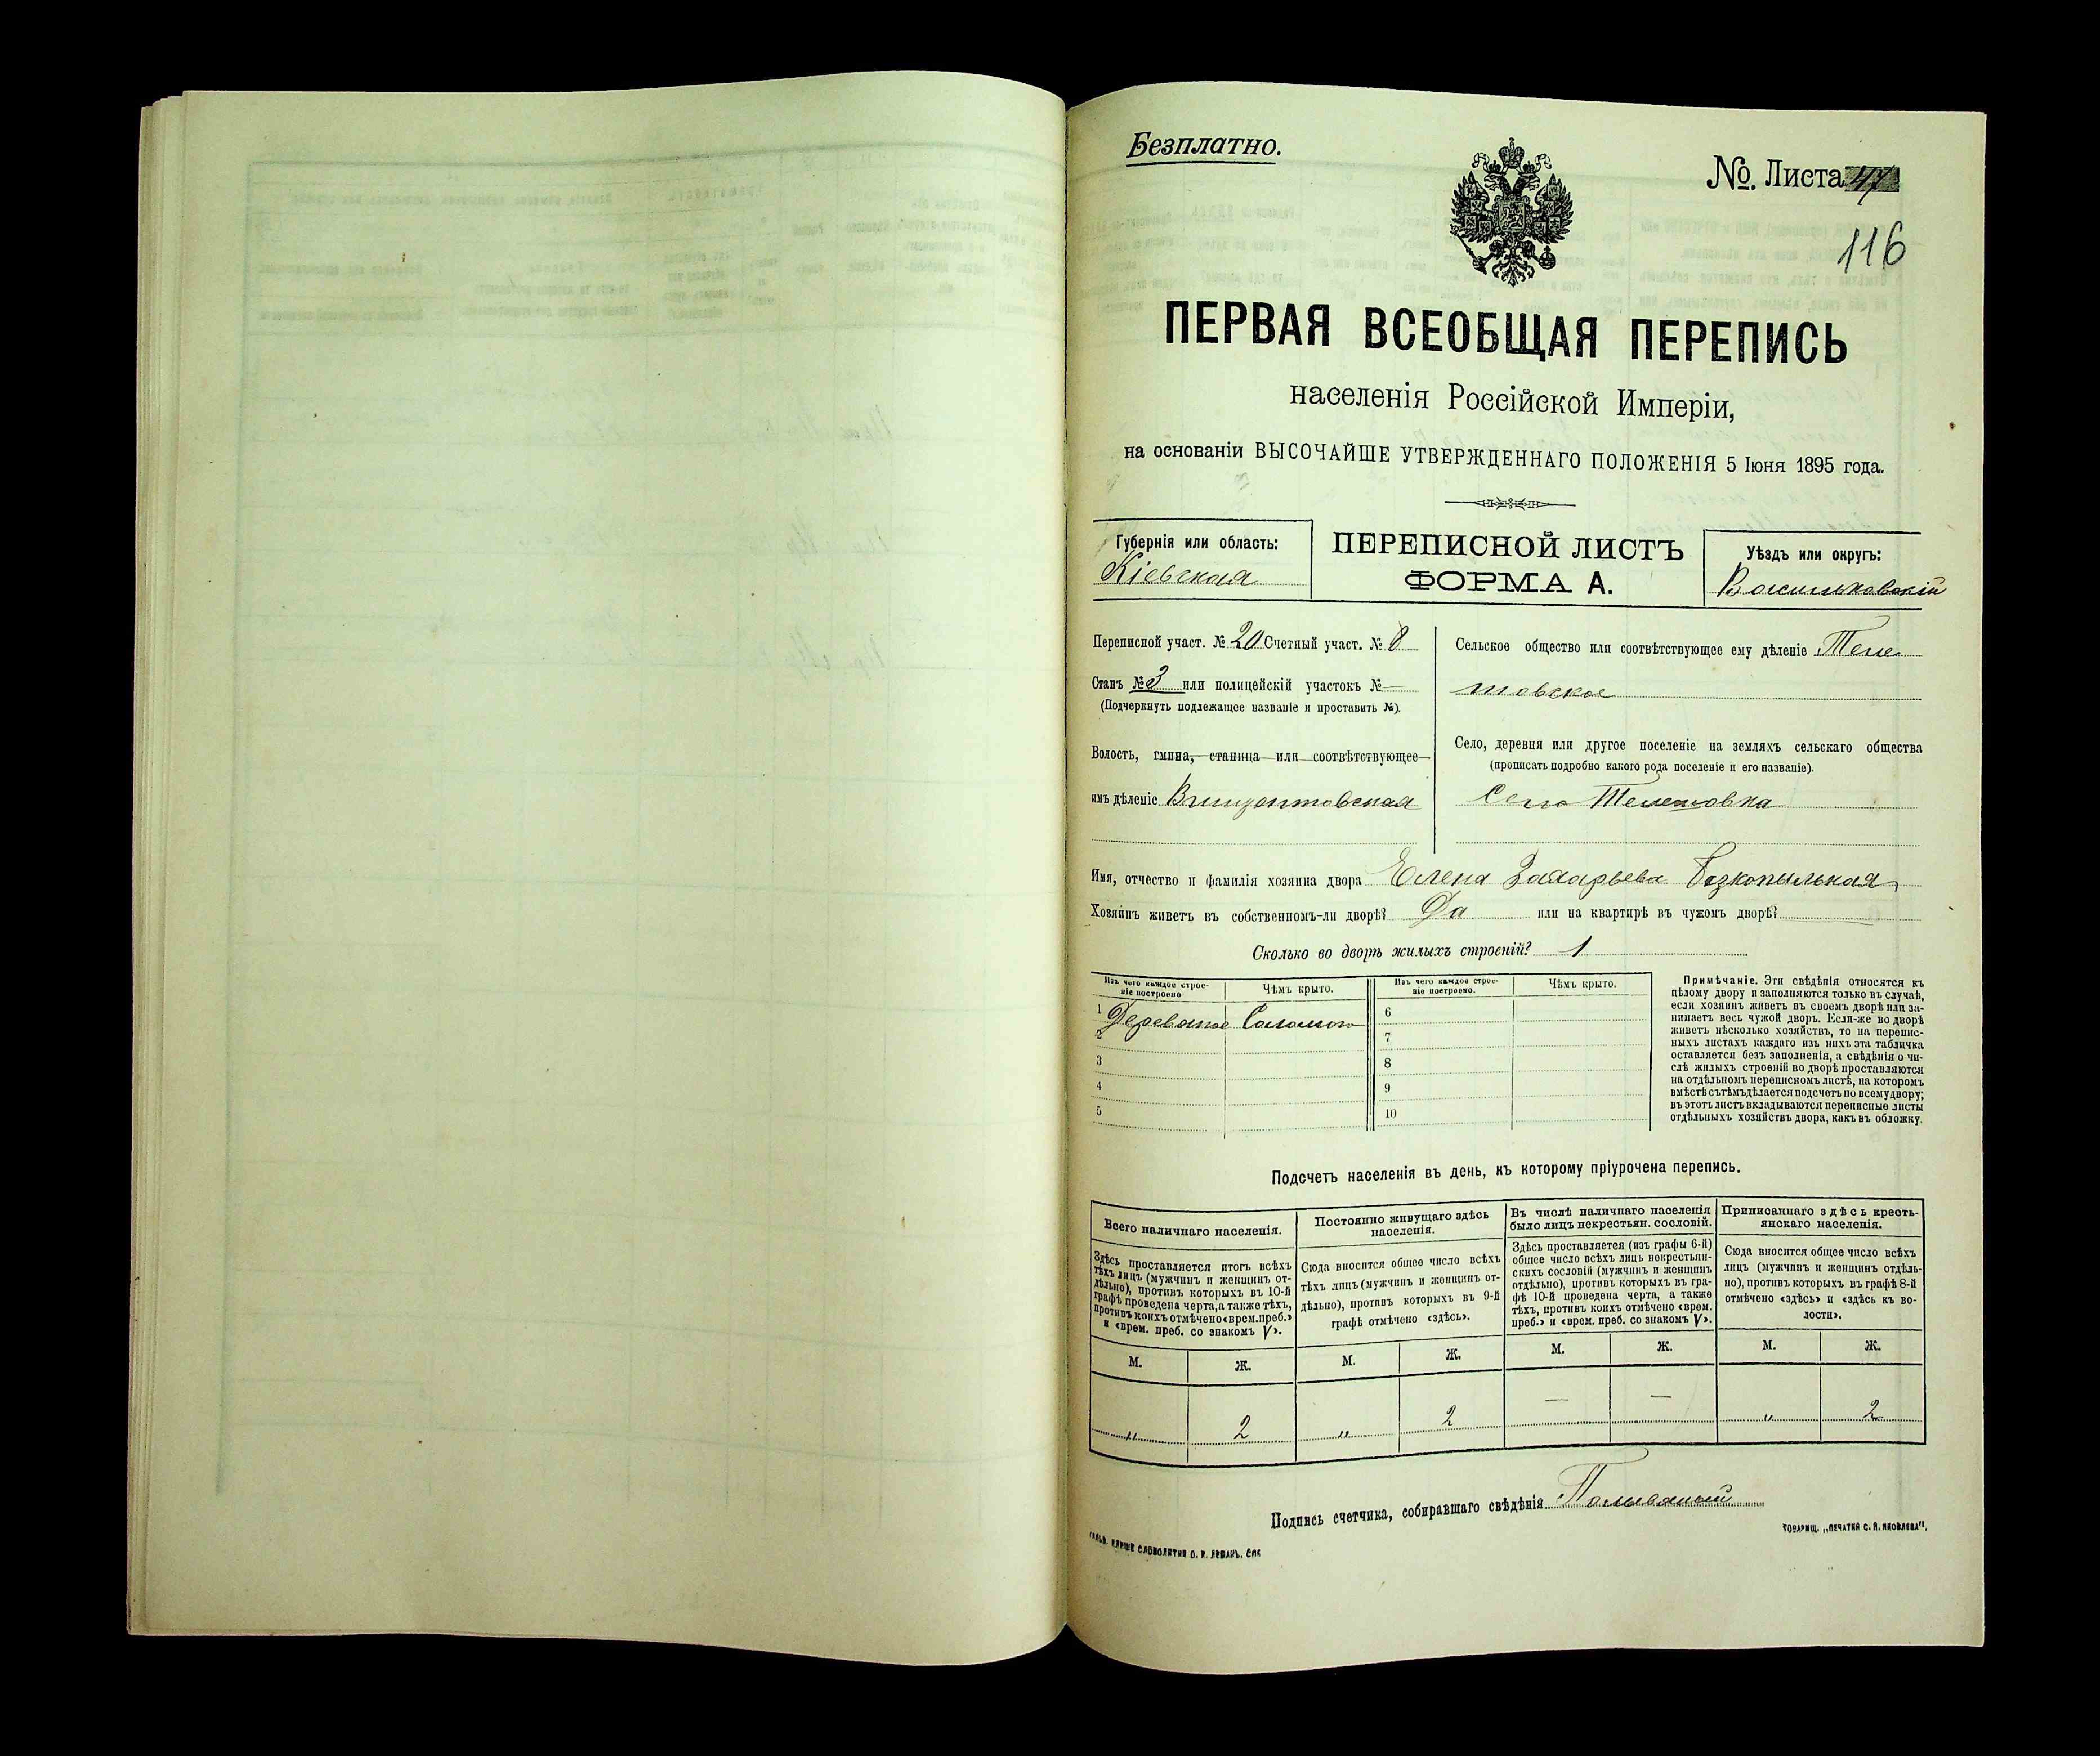 Безплатно.
№. Листа 47
116
ПЕРВАЯ ВСЕОБЩАЯ ПЕРЕПИСЬ
населенія Россійской Имперіи,
на основаніи ВЫСОЧАЙШЕ УТВЕРЖДЕННАГО ПОЛОЖЕНІЯ 5 Іюня 1895 года.
Губернія или область:
Кіевская
ПЕРЕПИСНОЙ ЛИСТЪ
ФОРМА А.
Уѣздъ или округъ:
Васильковскій
Переписной участ. № 20 Счетный участ. № 8
Станъ № 3 или полицейскій участокъ № —
(Подчеркнуть подлежащее названіе и проставить №).
Волость, гмина, станица или соотвѣтствующее
имъ дѣленіе Винцентовская
Сельское общество или соотвѣтствующее ему дѣленіе Теле
товское
Село, деревня или другое поселеніе на земляхъ сельскаго общества
(прописать подробно какого рода поселеніе и его названіе).
Село
Имя, отчество и фамилія хозяина двора Елена Захарьева
Хозяинъ живетъ въ собственномъ-ли дворѣ? Да или на квартирѣ въ чужомъ дворѣ?
Сколько во дворѣ жилыхъ строеній? 1
Изъ чего каждое строе-
ніе построено
Чѣмъ крыто.
Изъ чего каждое строе-
ніе построено.
Чѣмъ крыто.
1 Деревяное Соломою
2
3
4
5
6
7
8
9
10
Примѣчаніе. Эти свѣдѣнія относятся къ
цѣлому двору и заполняются только въ случаѣ,
если хозяинъ живетъ въ своемъ дворѣ или за-
нимаетъ весь чужой дворъ. Если-же во дворѣ
живетъ нѣсколько хозяйствъ, то на перепис-
ныхъ листахъ каждаго изъ нихъ эта табличка
оставляется безъ заполненія, а свѣдѣнія о чи-
слѣ жилыхъ строеній во дворѣ проставляются
на отдѣльномъ переписномъ листѣ, на которомъ
вмѣстѣ съ тѣмъ дѣлается подсчетъ по всему двору;
въ этотъ листъ вкладываются переписные листы
отдѣльныхъ хозяйствъ двора, какъ въ обложку.
Подсчетъ населенія въ день, къ которому пріурочена перепись.
Всего наличнаго населенія.
Здѣсь проставляется итогъ всѣхъ
тѣхъ лицъ (мужчинъ и женщинъ от-
дѣльно), противъ которыхъ въ 10-й
графѣ проведена черта, а также тѣхъ,
противъ коихъ отмѣчено «врем. преб.»
и «врем. преб. со знакомъ V».
Постоянно живущаго здѣсь
населенія.
Сюда вносится общее число всѣхъ
тѣхъ лицъ (мужчинъ и женщинъ от-
дѣльно), противъ которыхъ въ 9-й
графѣ отмѣчено «здѣсь».
Въ числѣ наличнаго населенія
было лицъ некрестьян. сословій.
Здѣсь проставляется (изъ графы 6-й)
общее число всѣхъ лицъ некрестьян-
скихъ сословій (мужчинъ и женщинъ
отдѣльно), противъ которыхъ въ гра-
фѣ 10-й проведена черта, а также
тѣхъ, противъ коихъ отмѣчено «врем.
преб.» и «врем. преб. со знакомъ V».
Приписаннаго здѣсь кресть-
янскаго населенія.
Сюда вносится общее число всѣхъ
лицъ (мужчинъ и женщинъ отдѣль-
но), противъ которыхъ въ графѣ 8-й
отмѣчено «здѣсь» и «здѣсь къ во-
лости».
М. Ж. М. Ж. М. Ж. М. Ж.
„ 2 „ 2 — — „ 2
Подпись счетчика, собиравшаго свѣдѣнія
СЛОВОЛИТНИ О. И. ЛЕМАНЪ. СПБ
ТОВАРИЩ. „ПЕЧАТНЯ С. П. ЯКОВЛЕВА",